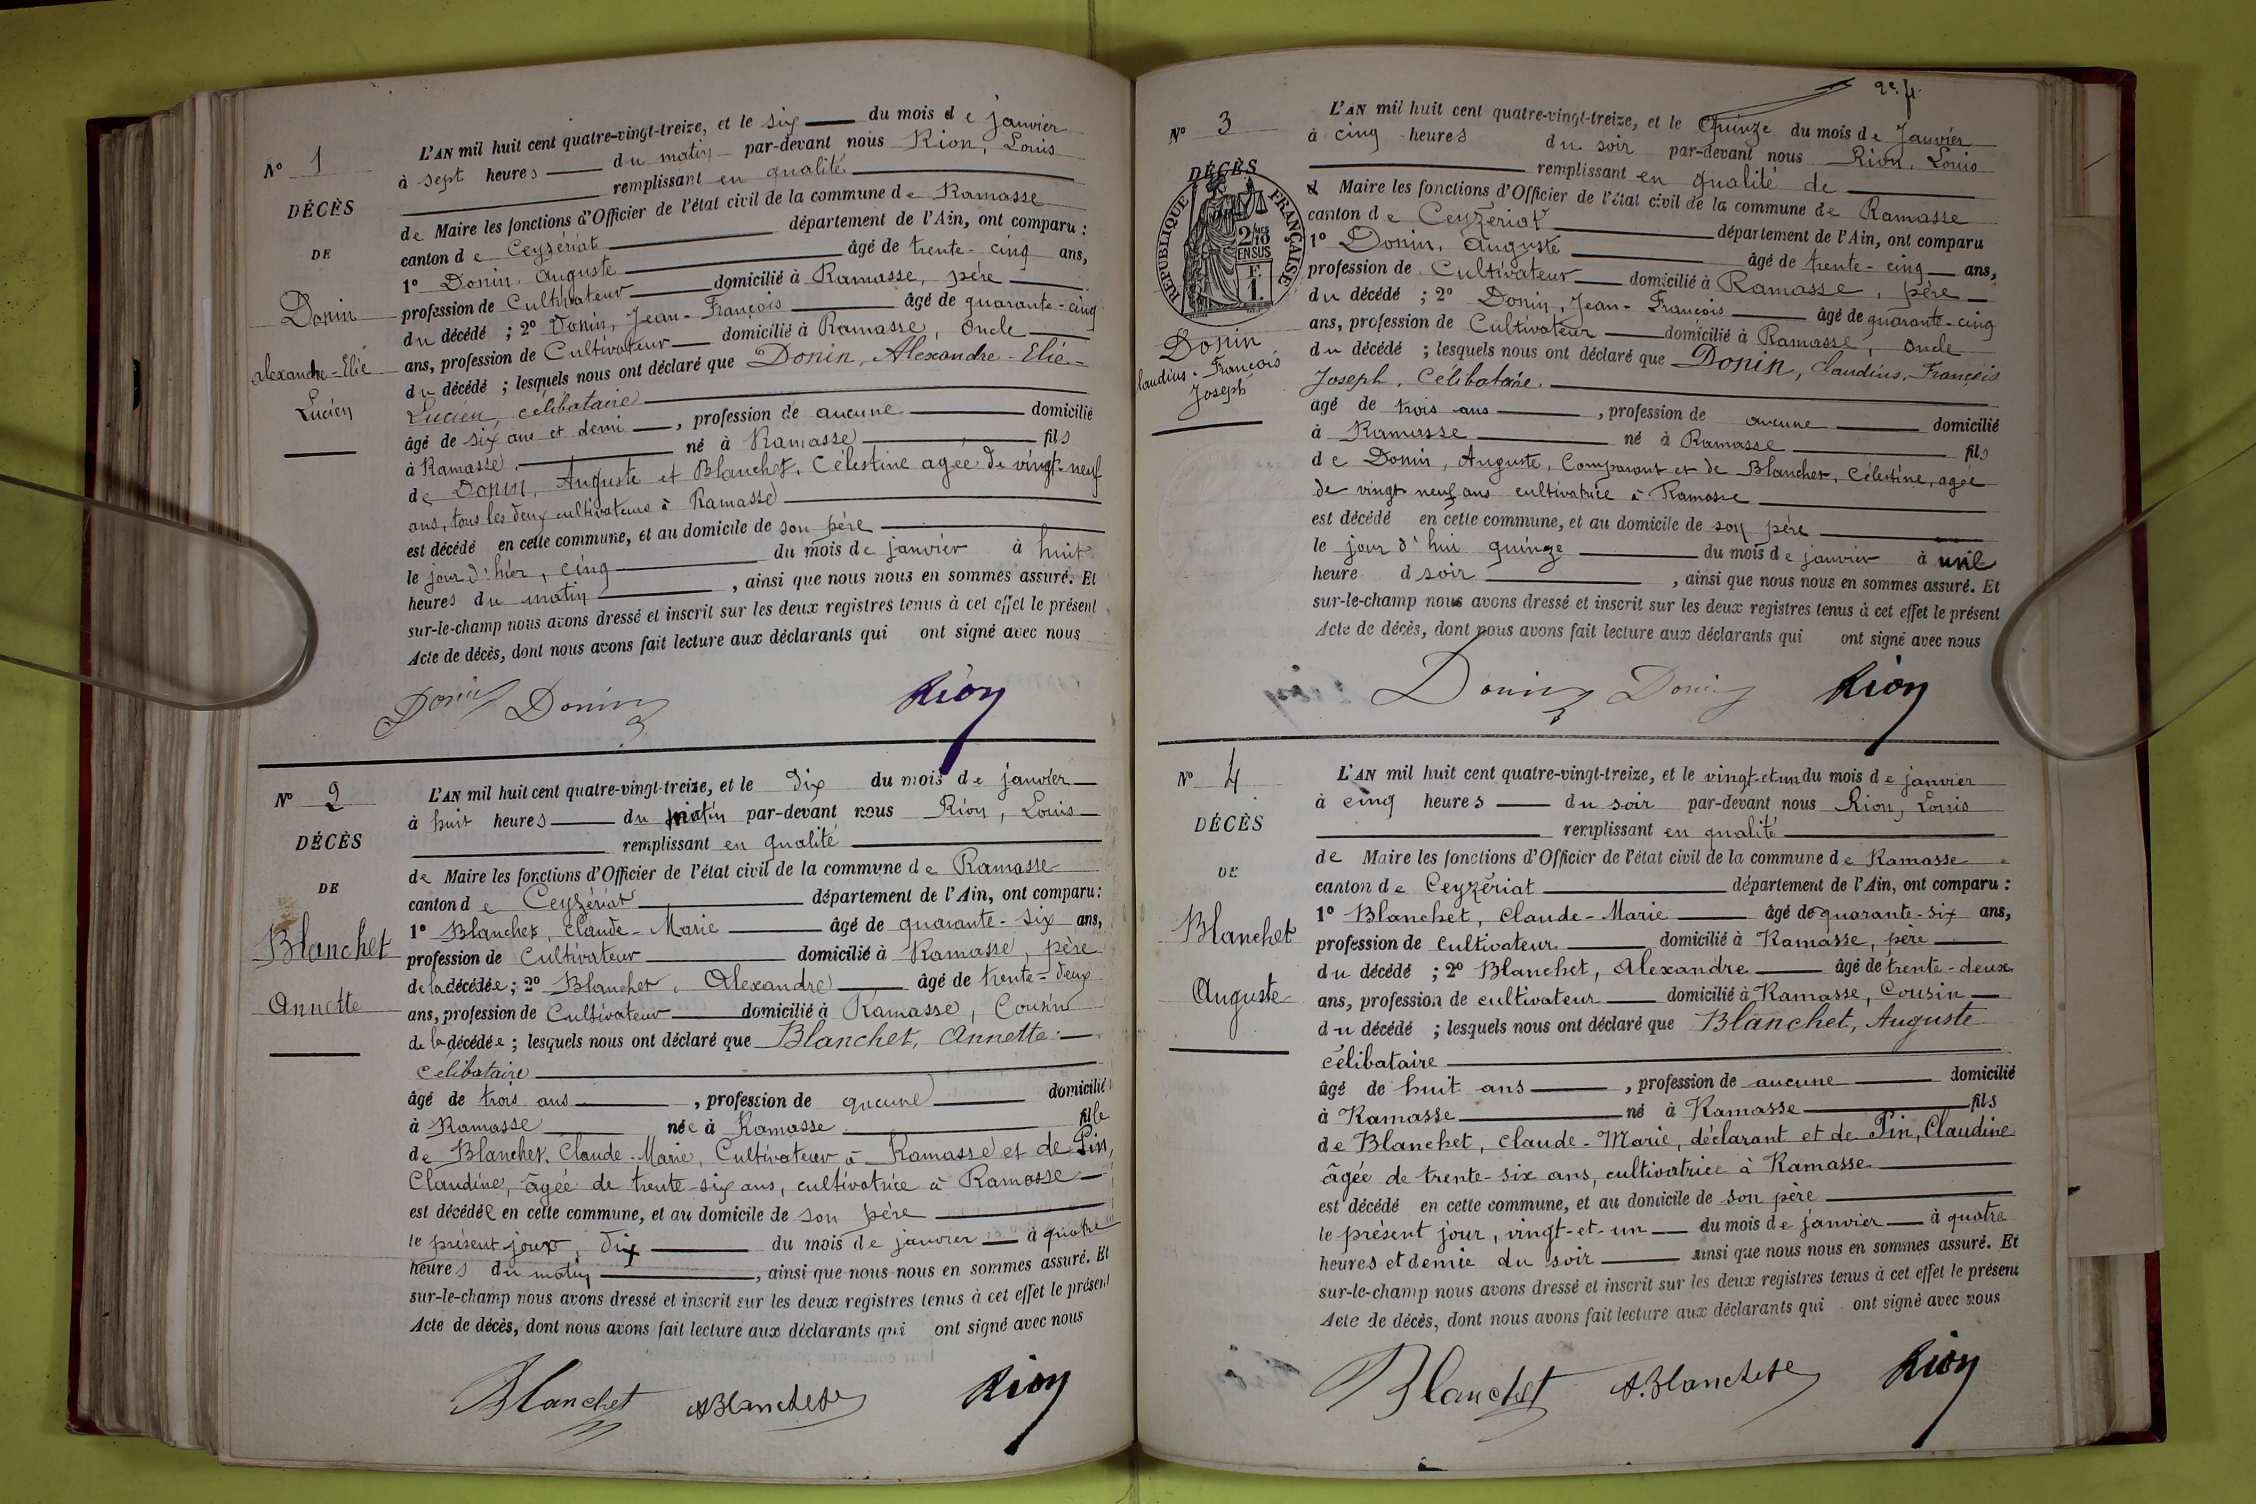 N° 1
DÉCÈS
DE
Donin
Alexandre-Elie
Lucien
L'AN mil huit cent quatre-vingt-treize, et le six du mois de janvier
à sept heures du matin par-devant nous Rion, Louis
remplissant en qualité
de Maire les fonctions d'Officier de l'état civil de la commune de Ramasse
canton de Ceyzériat département de l'Ain, ont comparu :
1° Donin, Auguste âgé de trente-cinq ans,
profession de Cultivateur domicilié à Ramasse, père
du décédé ; 2° Donin, Jean-François âgé de quarante-cinq
ans, profession de Cultivateur domicilié à Ramasse, Oncle
du décédé ; lesquels nous ont déclaré que Donin, Alexandre-Elie-
Lucien, célibataire
âgé de six ans et demi, profession de aucune domicilié
à Ramasse, né à Ramasse fils
de Donin, Auguste et Blanchet, Célestine agée de vingt-neuf
ans, tous les deux cultivateurs à Ramasse
est décédé en cette commune, et au domicile de son père
le jour d'hier, cinq du mois de janvier à huit
heures du matin, ainsi que nous nous en sommes assuré. Et
sur-le-champ nous avons dressé et inscrit sur les deux registres tenus à cet effet le présent
Acte de décès, dont nous avons fait lecture aux déclarants qui ont signé avec nous
Donin Donin Rion
N° 2
DÉCÈS
DE
Blanchet
Annette
L'AN mil huit cent quatre-vingt-treize, et le dix du mois de janvier
à huit heures du matin par-devant nous Rion, Louis
remplissant en qualité
de Maire les fonctions d'Officier de l'état civil de la commune de Ramasse
canton de Ceyzériat département de l'Ain, ont comparu :
1° Blanchet, Claude-Marie âgé de quarante-six ans,
profession de Cultivateur domicilié à Ramasse, père
de la décédée ; 2° Blanchet, Alexandre âgé de trente-deux
ans, profession de Cultivateur domicilié à Ramasse, Cousin
de la décédée ; lesquels nous ont déclaré que Blanchet, Annette
célibataire
âgé de trois ans, profession de aucune domicilié
à Ramasse née à Ramasse fille
de Blanchet, Claude-Marie, Cultivateur à Ramasse et de Pin,
Claudine, âgée de trente-six ans, cultivatrice à Ramasse
est décédée en cette commune, et au domicile de son père
le présent jour, dix du mois de janvier à quatre
heures du matin, ainsi que nous nous en sommes assuré. Et
sur-le-champ nous avons dressé et inscrit sur les deux registres tenus à cet effet le présent
Acte de décès, dont nous avons fait lecture aux déclarants qui ont signé avec nous
Blanchet A Blanchet Rion
N° 3
DÉCÈS
RÉPUBLIQUE FRANÇAISE
2/10
EN SUS
F.
1.
Donin
laudius-François
Joseph
L'AN mil huit cent quatre-vingt-treize, et le Quinze du mois de Janvier
à cinq heures du soir par-devant nous Rion, Louis
remplissant en qualité de
Maire les fonctions d'Officier de l'état civil de la commune de Ramasse
canton de Ceyzériat département de l'Ain, ont comparu
1° Donin, Auguste âgé de trente-cinq ans,
profession de Cultivateur domicilié à Ramasse, père
du décédé ; 2° Donin, Jean-François âgé de quarante-cinq
ans, profession de Cultivateur domicilié à Ramasse, Oncle
du décédé ; lesquels nous ont déclaré que Donin, Claudius, François
Joseph, Célibataire.
âgé de trois ans, profession de aucune domicilié
à Ramasse né à Ramasse fils
de Donin, Auguste, Comparant et de Blanchet, Célestine, agée
de vingt neuf ans cultivatrice à Ramasse
est décédé en cette commune, et au domicile de son père
le jour d'hui quinze du mois de janvier à une
heure d soir, ainsi que nous nous en sommes assuré. Et
sur-le-champ nous avons dressé et inscrit sur les deux registres tenus à cet effet le présent
Acte de décès, dont nous avons fait lecture aux déclarants qui ont signé avec nous
Donin Donin Rion
N° 4
DÉCÈS
DE
Blanchet
Auguste
L'AN mil huit cent quatre-vingt-treize, et le vingt-et-un du mois de janvier
à cinq heures du soir par-devant nous Rion, Louis
remplissant en qualité
de Maire les fonctions d'Officier de l'état civil de la commune de Ramasse
canton de Ceyzériat département de l'Ain, ont comparu :
1° Blanchet, Claude-Marie âgé de quarante-six ans,
profession de cultivateur domicilié à Ramasse, père
du décédé ; 2° Blanchet, Alexandre âgé de trente-deux
ans, profession de cultivateur domicilié à Ramasse, Cousin
du décédé ; lesquels nous ont déclaré que Blanchet, Auguste
célibataire
âgé de huit ans, profession de aucune domicilié
à Ramasse né à Ramasse fils
de Blanchet, Claude-Marie, déclarant et de Pin, Claudine
âgée de trente-six ans, cultivatrice à Ramasse
est décédé en cette commune, et au domicile de son père
le présent jour, vingt-et-un du mois de janvier à quatre
heures et demie du soir ainsi que nous nous en sommes assuré. Et
sur-le-champ nous avons dressé et inscrit sur les deux registres tenus à cet effet le présent
Acte de décès, dont nous avons fait lecture aux déclarants qui ont signé avec nous
Blanchet A. Blanchet Rion